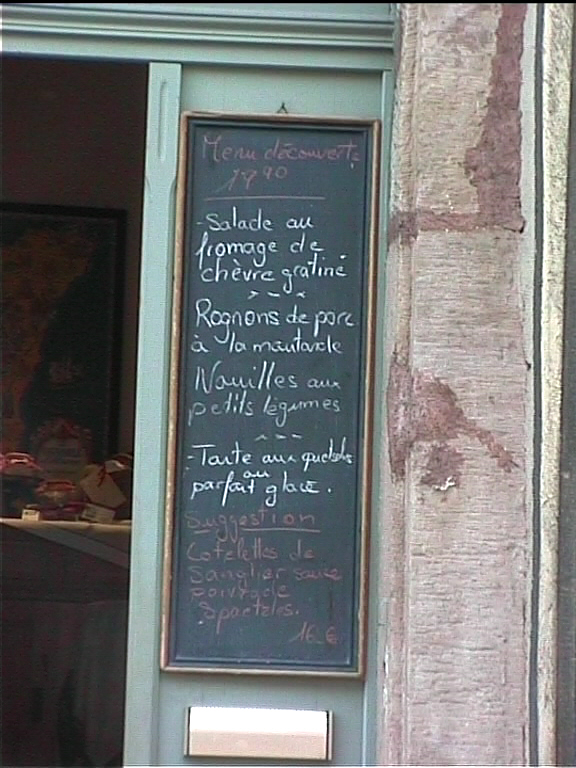 Menu découverte
17 90
- Salade au
fromage de
chèvre gratiné
Rognons de porc
à la moutarde
Nouilles aux
petits légumes
- Tarte aux quetsches
ou
parfait glacé.
Suggestion
Cotelettes de
Sanglier sauce
poivrade
Spaetzles.
16 €